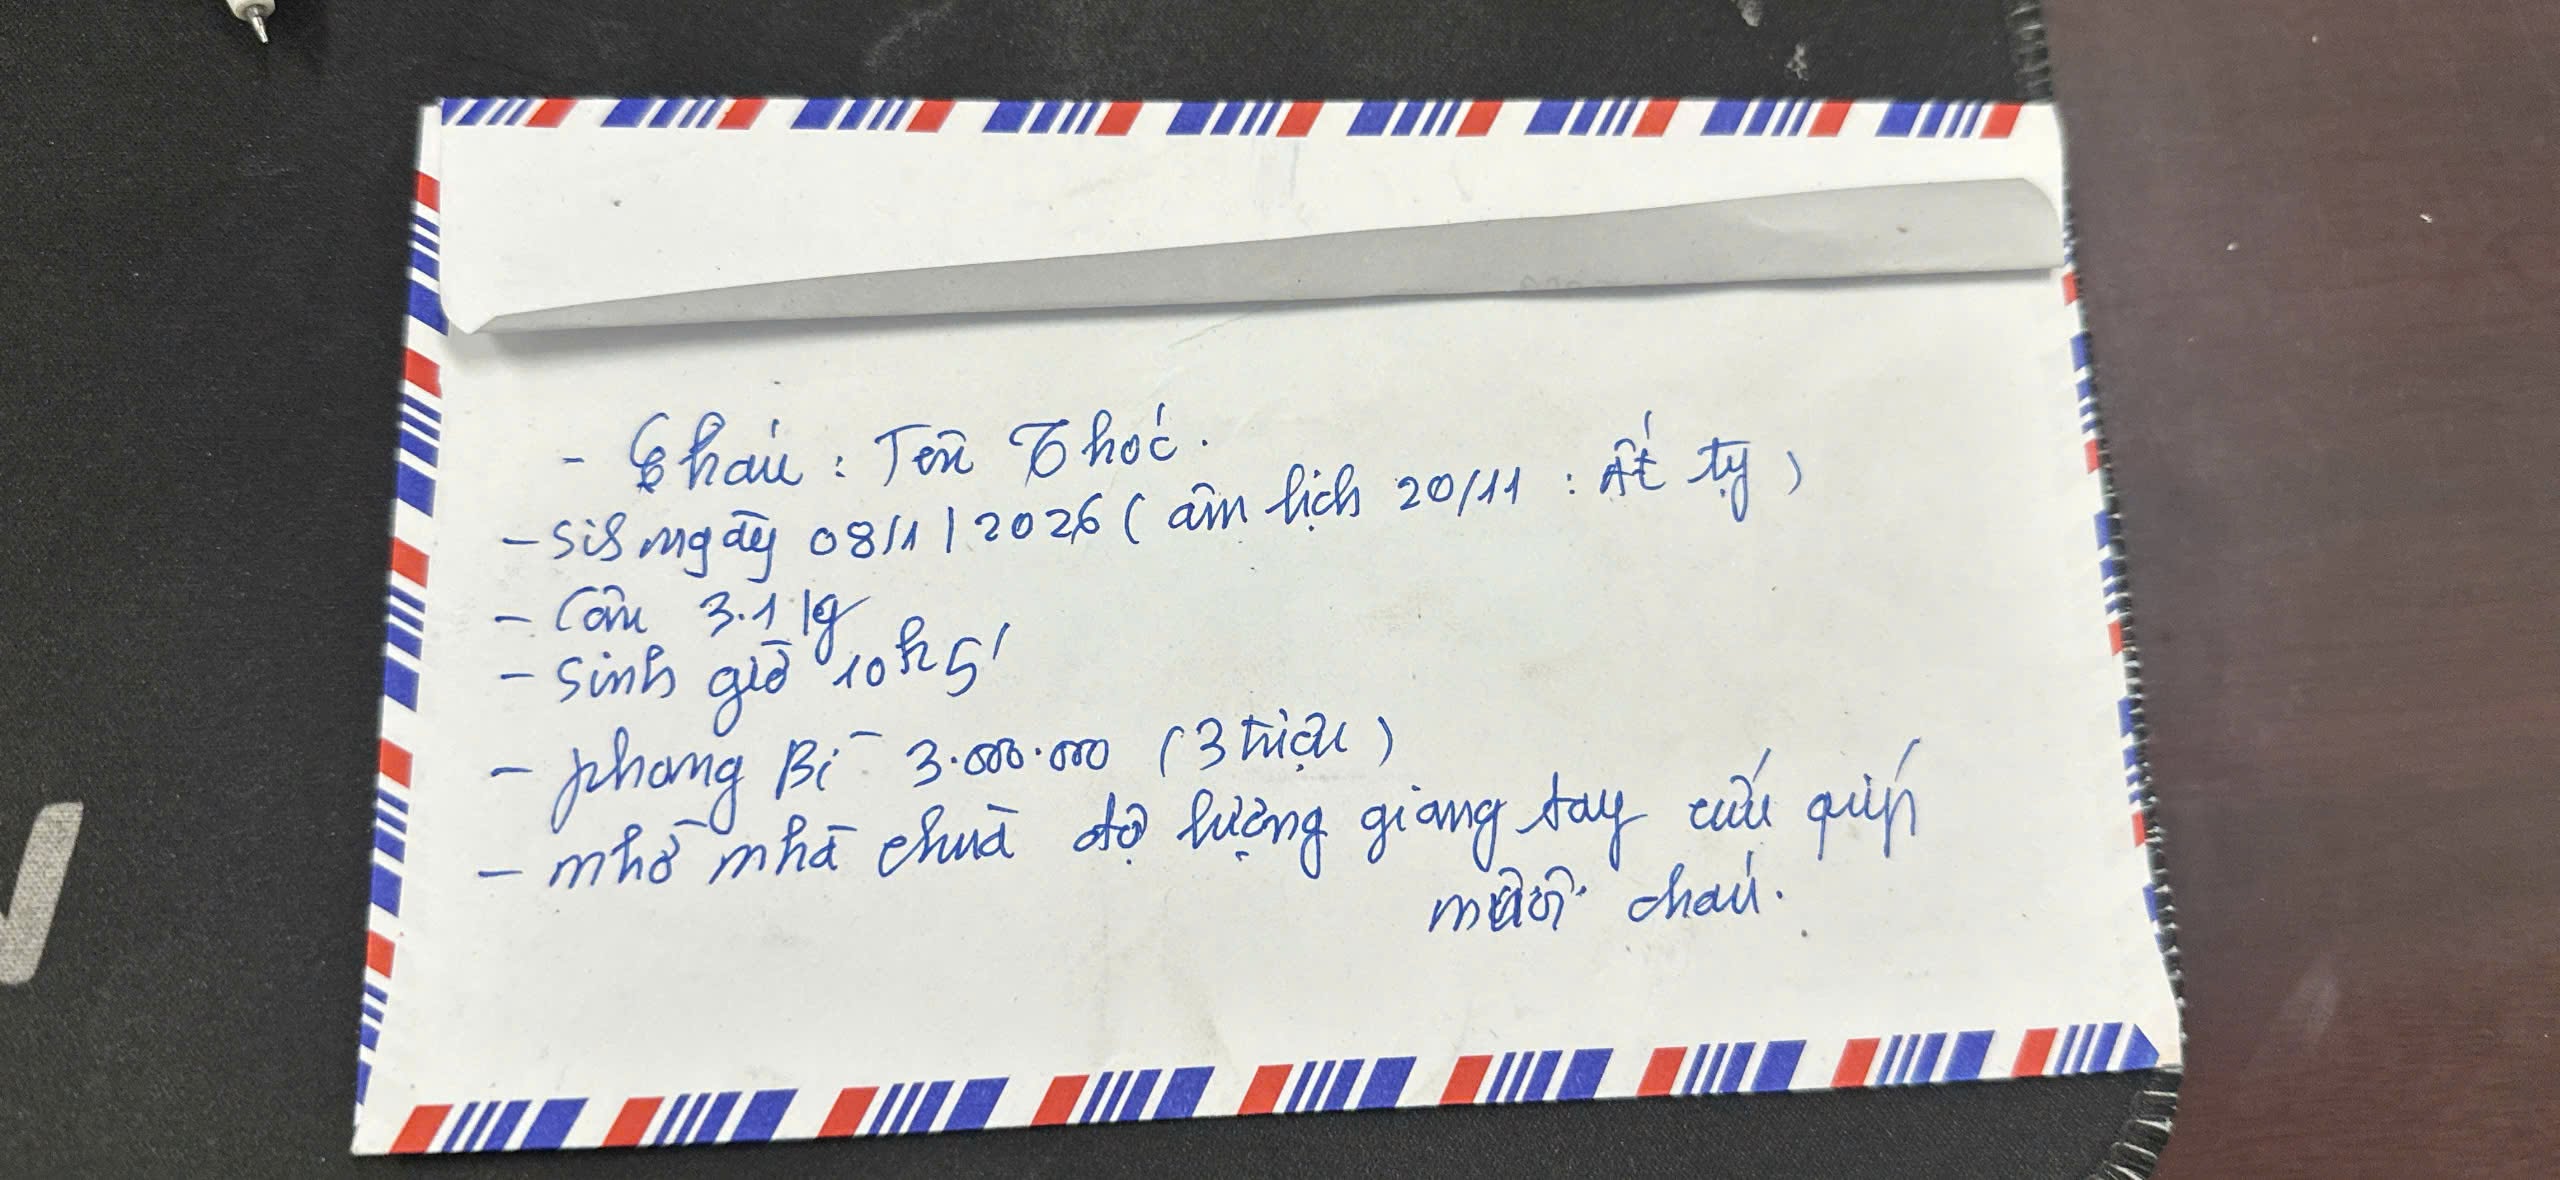 - Cháu : Tên Thóc.
- Sis ngày 08/1/2026 ( âm lịch 20/11 : Ất tỵ )
- Cân 3.1 kg
- Sinh giờ 10h5'
- phong Bì - 3.000.000 ( 3 triệu )
- nhờ nhà chùa độ lượng giang tay cứu giúp
cháu.